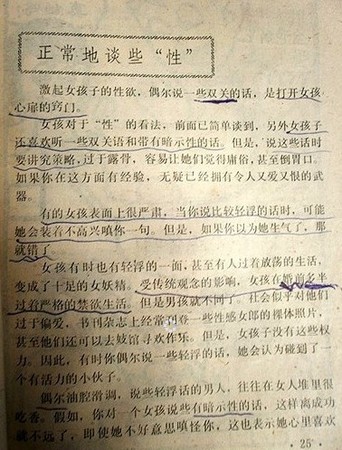 正常地谈些“性”
激起女孩子的性欲，偶尔说一些双关的话，是打开女孩
心扉的窍门。
女孩对于“性”的看法，前面已简单谈到，另外女孩子
还喜欢听一些双关语和带有暗示性的话。但是，说这些话时
要讲究策略，过于露骨，容易让她们觉得庸俗，甚至倒胃口。
如果你在这方面有经验，无疑已经拥有令人又爱又恨的武
器。
有的女孩表面上很严肃，当你说比较轻浮的话时，可能
她会装着不高兴嗔你一句。但是，如果你以为她生气了，那
就错了。
女孩有时也有轻浮的一面，甚至有人过着放荡的生活，
变成了十足的女妖精。受传统观念的影响，女孩在婚前多半
过着严格的禁欲生活。但是男孩就不同了，社会似乎对他们
过于偏爱，书刊杂志上经常刊登一些性感女郎的裸体照片，
甚至他们还可以去妓馆寻欢作乐。但是，女孩子没有这些权
力。因此，有时你偶尔说一些轻浮的话，她会认为碰到了一
个有活力的小伙子。
偶尔油腔滑调，说些轻浮话的男人，往往在女人堆里很
吃香。假如，你对一个女孩说些有暗示性的话，这样离成功
就不远了，即使她不好意思嗔怪你，这也表示她心里喜欢
·25·